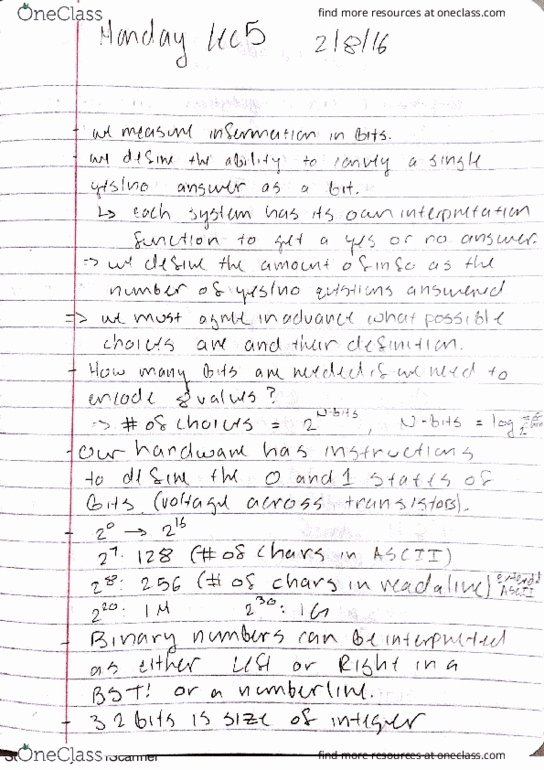 OneClass find more resources at oneclass.com
Monday Lec 5 2/8/16
- we measure information in bits.
- we define the ability to convey a single
yes/no answer as a bit.
↳ Each system has its own interpretation
function to get a yes or no answer.
=> we define the amount of info as the
number of yes/no questions answered
=> we must agree in advance what possible
choices are and their definition.
- How many bits are needed if we need to
encode 8 values?
=> # of choices = 2^N-bits, N-bits = log2
- Our hardware has instructions
to define the 0 and 1 states of
bits. (voltage across transistors).
- 2^0 → 2^16
2^7: 128 (# of chars in ASCII)
2^8: 256 (# of chars in extend ASCII
2^20: 1M 2^30: 1G
- Binary numbers can be interpreted
as either Left or Right in a
BST! or a numberline.
- 32 bits is size of integer
OneClass Scanner find more resources at oneclass.com